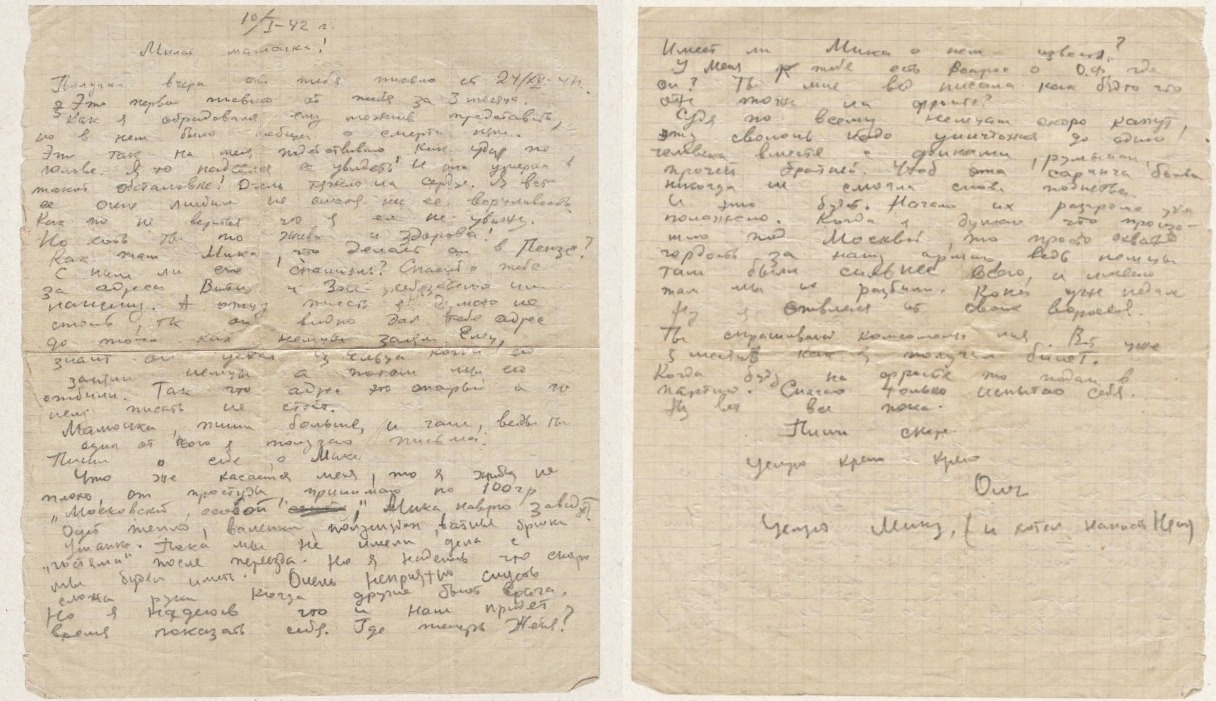 10/I-42 г.
Милая мамочка!
Получил вчера от тебя письмо от 24/XII-41г.
Это первое письмо от тебя за 3 месяца.
Как я обрадовался ему можешь представить,
но в нем было сообщ о смерти
Это так на меня подействовало как удар по
голове. Я то надеялся ее увидеть! И она умерла в
такой обстановке! Очень тяжело на сердце. Я вет
ее очень любил не смотря на ее ворчливость
Как то не верится что я ее не увижу.
Но хоть ты то жива и здорова!
Как там Мика, что делает он в Пензе?
С ним ли его спаниель? Спасибо тебе
за адреса Вити и Зои, обязательно им
напишу. А отцу писать я думаю не
стоит, тк он видно дал тебе адрес
до того как немцы заняли Елец,
значит он уехал из Ельца когда его
заняли немцы а потом мы его
отбили. Так что адрес это старый а по
нему писать не стоит.
Мамочка, пиши больше, и чаще, ведь ты
один от кого я получаю письма.
Пиши о себе о Мике
Что же касается меня, то я живу не
плохо, от простуды принимаю по 100гр
"Московской особой", Мика наверно завидует.
Одет тепло, валенки полушубок, ватные брюки
ушанка. Пока мы не имели дела с
"гостями" после переезда. Но я надеюсь что скоро
мы будем иметь. Очень неприятно сидеть
сложа руки когда другие бьют врага.
Но я надеюсь что и нам придет
время показать себя. Где теперь Женя?
Имеет ли Мика о нем известия?
У меня к тебе есть вопрос о О.Ф. где
он? Ты мне все писала как будто что
он тоже на фронте?
Судя по всему немцам скоро капут,
эту сволочь надо уничтожить до одного
человека вместе с финнами, румынами
прочей братией. Чтоб эта саранча больше
никогда не смогла снова подняться.
И это будет. Начало их разгрома уже
положено. Когда я думаю что произо-
шло под Москвой, то просто охватывает
гордость за нашу армию ведь немцы
там были сильнее всего, и именно
там мы их разбили. Конец уже недалек
Ну я отвлекся от своих вопросов.
Ты спрашивала комсомолец ли я. Вот уже
3 месяца как я получил билет.
Когда буду на фронте то подам в
партию. Сначала только испытаю себя.
Ну вот все пока.
Пиши скорее
Целую крепко крепко
Олег
Целуй Мику, (и хотел написать Нец)